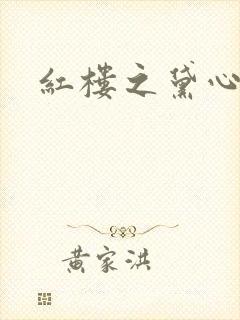 紅樓之黛心
黃家洪